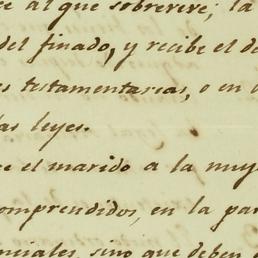 e al que sobrevive; la
del finado, y recibe el de
es testamentarias, o en
las leyes.
ce el marido a la muj
comprendidos, en la par
nciales, sino que deben